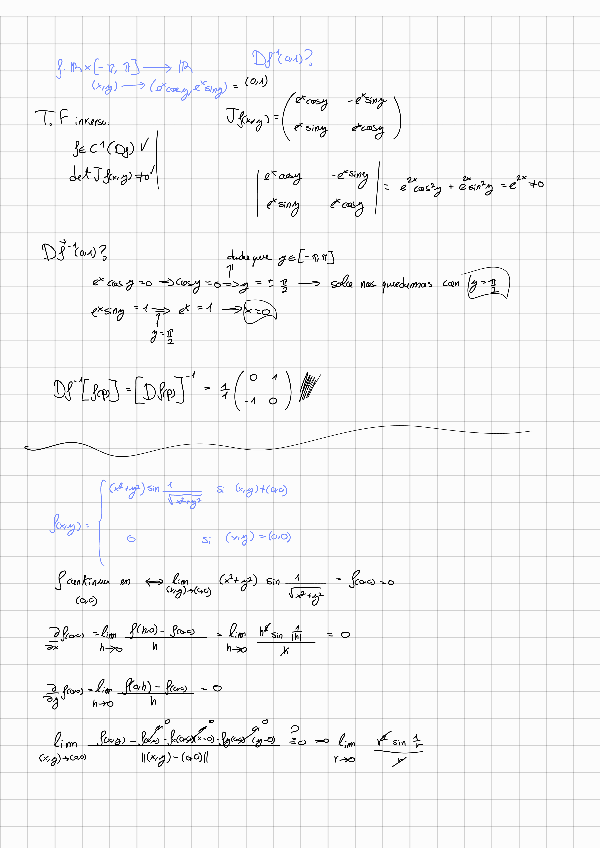 Df⁻¹(0,1)?
f: ℝ×[-π, π] → ℝ
(x,y) → (eˣcosy, eˣsiny) = (0,1)
T. F inversa:
Jf(x,y) = ( eˣcosy  -eˣsiny
eˣsiny  eˣcosy )
f ∈ C¹(Df) ✓
det Jf(x,y) ≠ 0 ✓
| eˣcosy  -eˣsiny
eˣsiny  eˣcosy | = e²ˣcos²y + e²ˣsin²y = e²ˣ ≠ 0
Df⁻¹(0,1)?
dado que y ∈ [-π,π]
eˣcosy = 0 → cosy = 0 ⇒ y = ± π/2 → solo nos quedamos con y = π/2
eˣsiny = 1 ⇒ eˣ = 1 → x = 0
y = π/2
Df⁻¹[f(p)] = [Df(p)]⁻¹ = 1/1 ( 0  1
-1  0 )
f(x,y) = { (x²+y²) sin 1/√(x²+y²)  si (x,y) ≠ (0,0)
0  si (x,y) = (0,0)
f continua en (0,0) ↔ lim (x,y)→(0,0) (x²+y²) sin 1/√(x²+y²) = f(0,0) = 0
∂/∂x f(0,0) = lim h→0 (f(h,0) - f(0,0))/h = lim h→0 (h² sin 1/|h|)/h = 0
∂/∂y f(0,0) = lim h→0 (f(0,h) - f(0,0))/h = 0
lim (x,y)→(0,0) (f(x,y) - f(0,0) - fx(0,0)(x-0) - fy(0,0)(y-0))/||(x,y) - (0,0)|| =? 0 ⇒ lim r→0 (r² sin 1/r)/r